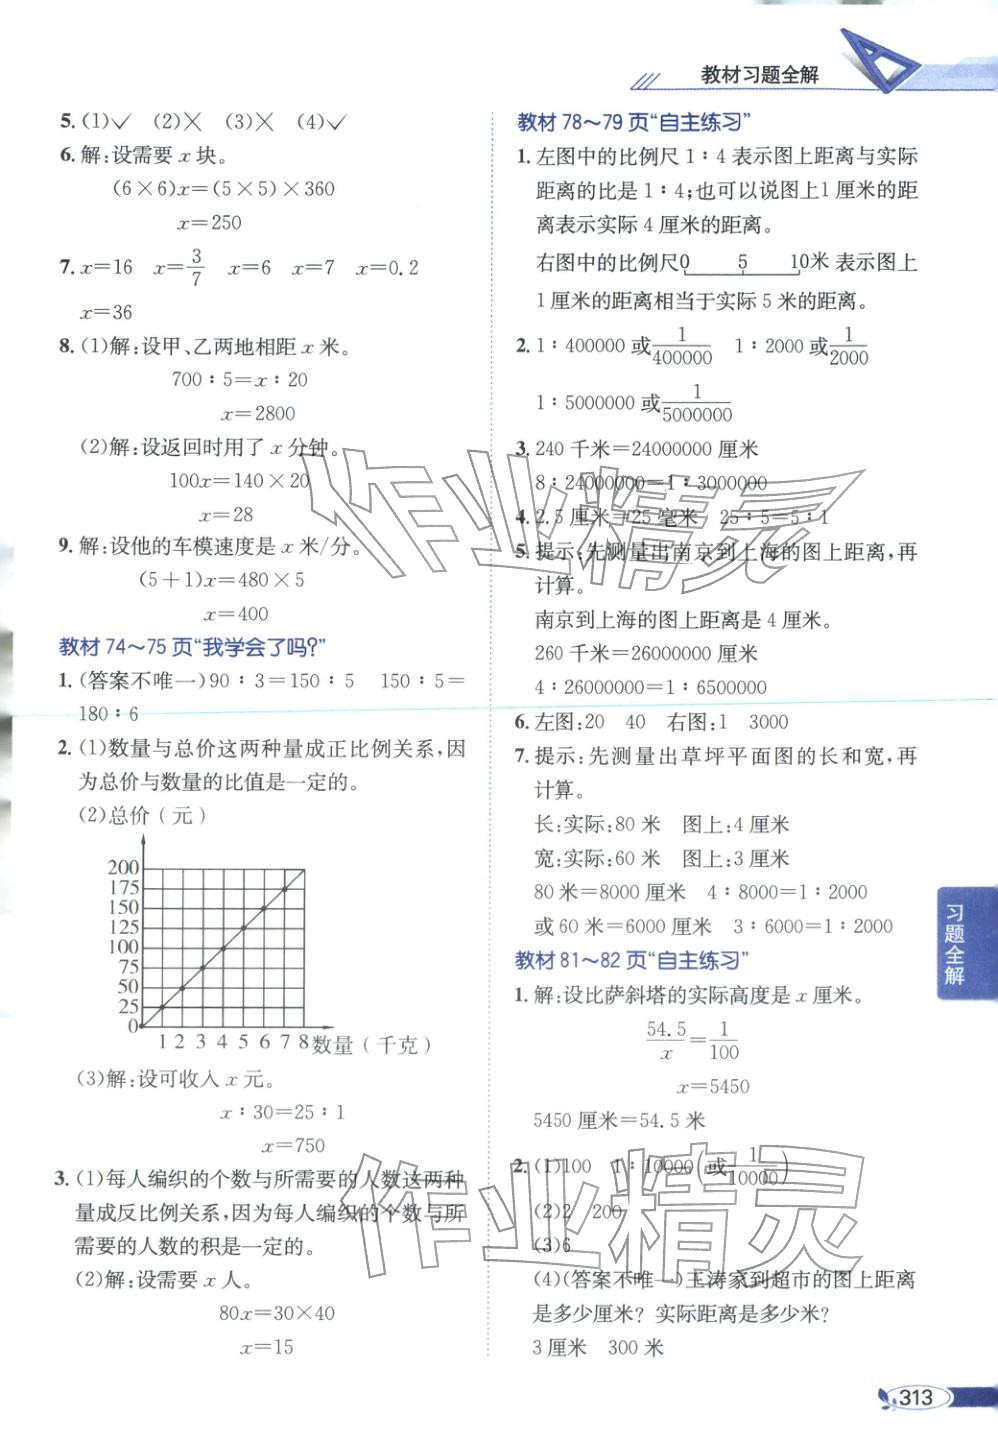 教材习题全解
5. (1)✓ (2)╳ (3)╳ (4)✓
6. 解:设需要 x 块。
(6×6)x=(5×5)×360
x=250
7. x=16 x=3/7 x=6 x=7 x=0.2
x=36
8. (1)解:设甲、乙两地相距 x 米。
700∶5=x∶20
x=2800
(2)解:设返回时用了 x 分钟。
100x=140×20
x=28
9. 解:设他的车模速度是 x 米/分。
(5+1)x=480×5
x=400
教材 74~75 页“我学会了吗?”
1. (答案不唯一)90∶3=150∶5 150∶5=
180∶6
2. (1)数量与总价这两种量成正比例关系,因
为总价与数量的比值是一定的。
(2)总价(元)
200
175
150
125
100
75
50
25
0
1 2 3 4 5 6 7 8 数量(千克)
(3)解:设可收入 x 元。
x∶30=25∶1
x=750
3. (1)每人编织的个数与所需要的人数这两种
量成反比例关系,因为每人编织的个数与所
需要的人数的积是一定的。
(2)解:设需要 x 人。
80x=30×40
x=15
教材 78~79 页“自主练习”
1. 左图中的比例尺 1∶4 表示图上距离与实际
距离的比是 1∶4;也可以说图上1 厘米的距
离表示实际 4 厘米的距离。
右图中的比例尺0 5 10米 表示图上
1 厘米的距离相当于实际 5 米的距离。
2. 1∶400000 或1/400000 1∶2000 或1/2000
1∶5000000 或1/5000000
3. 240 千米=24000000 厘米
8∶24000000=1∶3000000
4. 2.5 厘米=25 毫米 25∶5=5∶1
5. 提示:先测量出南京到上海的图上距离,再
计算。
南京到上海的图上距离是 4 厘米。
260 千米=26000000 厘米
4∶26000000=1∶6500000
6. 左图:20 40 右图:1 3000
7. 提示:先测量出草坪平面图的长和宽,再
计算。
长:实际:80 米 图上:4 厘米
宽:实际:60 米 图上:3 厘米
80 米=8000 厘米 4∶8000=1∶2000
或 60 米=6000 厘米 3∶6000=1∶2000
教材 81~82 页“自主练习”
1. 解:设比萨斜塔的实际高度是 x 厘米。
54.5/x=1/100
x=5450
5450 厘米=54.5 米
2. (1)100 1∶10000(或1/10000)
(2)2 200
(3)6
(4)(答案不唯一)王涛家到超市的图上距离
是多少厘米? 实际距离是多少米?
3 厘米 300 米
习题全解
313
作业精灵
作业精灵